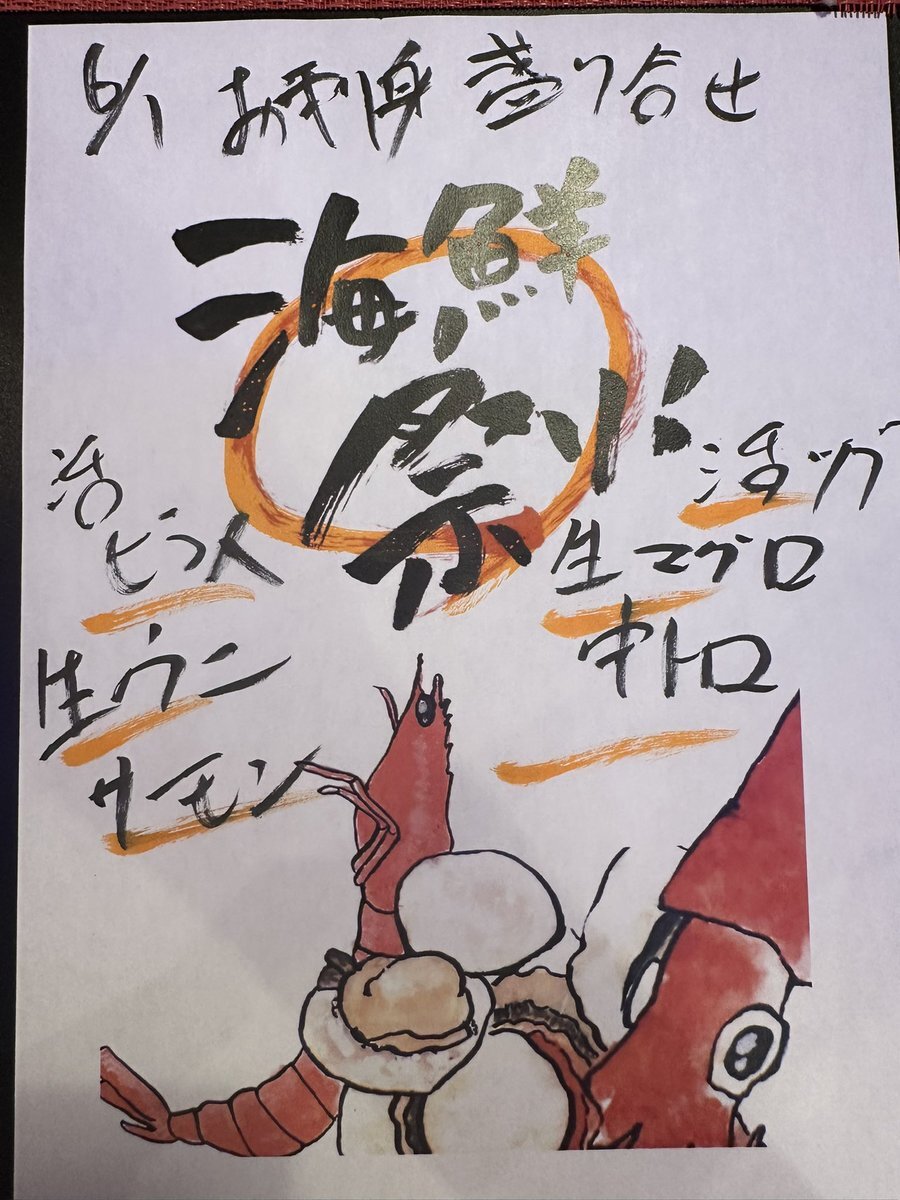 6/1 お刺身 盛り合せ
海鮮
祭り
活
ヒラメ
生ウニ
サーモン
活ツブ
生マグロ
中トロ